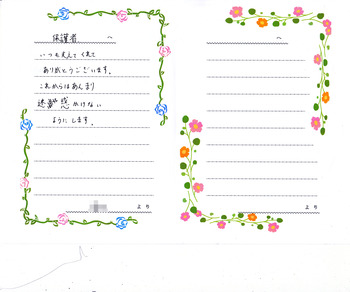 保護者 へ
いつも支えてくれて
ありがとうございます。
これからはあんまり
迷惑 惑かけない
ようにします。
より
へ
より